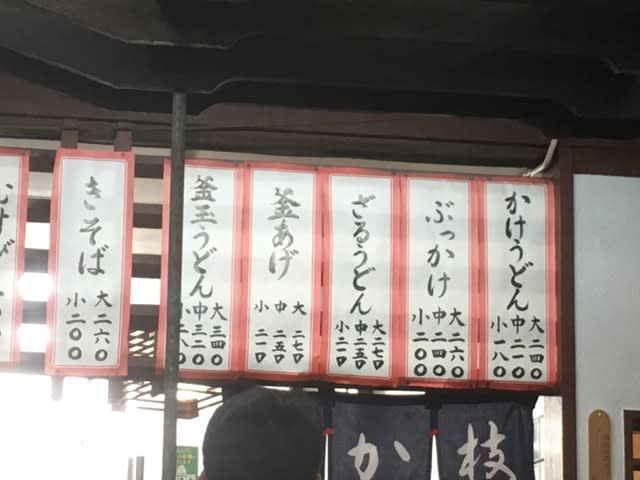 かけうどん
大二四〇
中二一〇
小一八〇
ぶっかけ
大二六〇
中二四〇
小二〇〇
ざるうどん
大二七〇
中二五〇
小二一〇
釜あげ
大二七〇
中二五〇
小二一〇
釜玉うどん
大三四〇
中三二〇
小二八〇
きそば
大二六〇
小二〇〇
枝
か